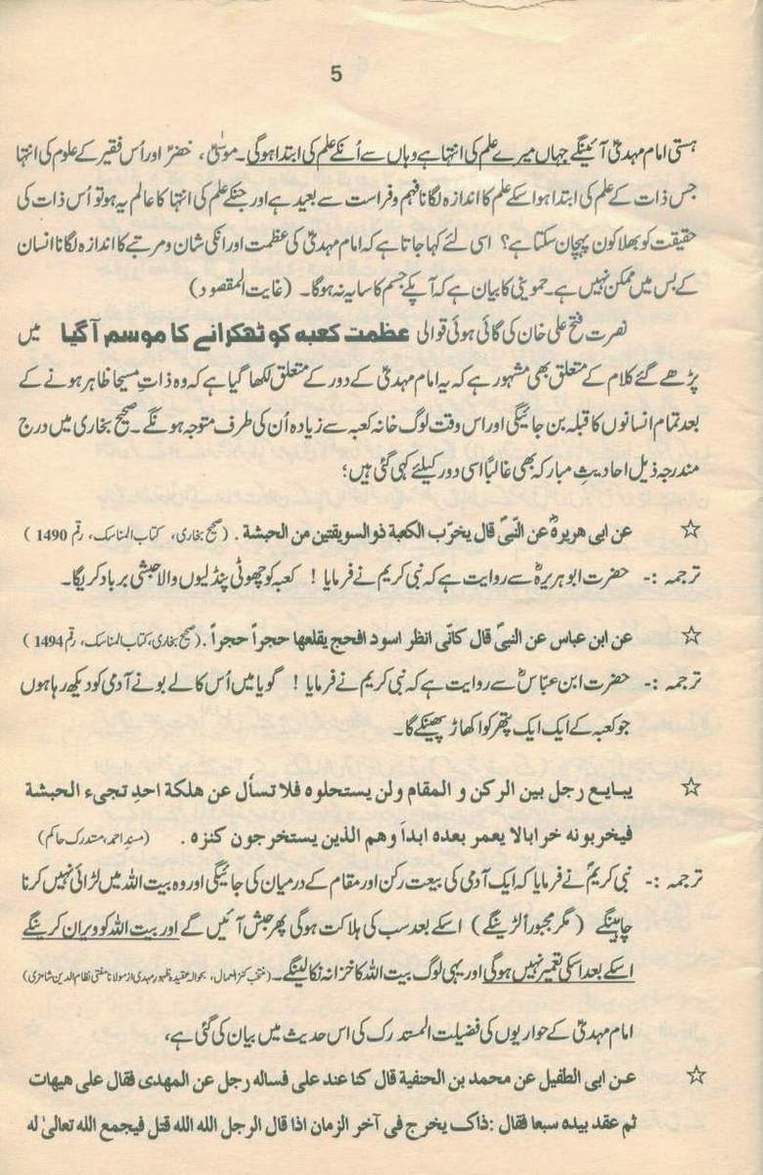 5
ہستی امام مہدیؑ آئینگے جہاں میرے علم کی انتہا ہے وہاں سے اُنکے علم کی ابتدا ہوگی۔ موسٰیؑ، خضرؑ اور اُس فقیر کے علوم کی انتہا
جس ذات کے علم کی ابتدا ہو اسکے علم کا اندازہ لگانا فہم و فراست سے بعید ہے اور جنکے علم کی انتہا کا عالم یہ ہو تو اُس ذات کی
حقیقت کو بھلا کون پہچان سکتا ہے؟ اسی لئے کہا جاتا ہے کہ امام مہدیؑ کی عظمت اور انکی شان و مرتبے کا اندازہ لگانا انسان
کے بس میں ممکن نہیں ہے۔ حموینی کا بیان ہے کہ آپکے جسم کا سایہ نہ ہوگا۔ (غایت المقصود)
نصرت فتح علی خان کی گائی ہوئی قوالی عظمت کعبہ کو ٹھکرانے کا موسم آ گیا میں
پڑھے گئے کلام کے متعلق بھی مشہور ہے کہ یہ امام مہدیؑ کے دور کے متعلق لکھا گیا ہے کہ وہ ذاتِ مسیحا ظاہر ہونے کے
بعد تمام انسانوں کا قبلہ بن جائیگی اور اس وقت لوگ خانہ کعبہ سے زیادہ اُن کی طرف متوجہ ہونگے۔ صحیح بخاری میں درج
مندرجہ ذیل احادیثِ مبارکہ بھی غالباً اسی دور کیلئے کہی گئی ہیں؛
☆ عن ابی هریرهؓ عن النّبیؐ قال یخرّب الکعبة ذوالسویقتین من الحبشة۔ (صحیح بخاری، کتاب المناسک، رقم 1490)
ترجمہ :- حضرت ابو ہریرہؓ سے روایت ہے کہ نبی کریم نے فرمایا ! کعبہ کو چھوٹی پنڈلیوں والا حبشی برباد کریگا۔
☆ عن ابن عباس عن النبیؐ قال کانّی انظر اسود افحج یقلعها حجراً حجراً۔ (صحیح بخاری، کتاب المناسک، رقم 1494)
ترجمہ :- حضرت ابن عبّاسؓ سے روایت ہے کہ نبی کریم نے فرمایا ! گویا میں اُس کالے بونے آدمی کو دیکھ رہا ہوں
جو کعبہ کے ایک ایک پتھر کو اکھاڑ پھینکے گا۔
☆ یبایع رجل بین الرکن و المقام ولن یستحلوه فلا تسأل عن هلکة احدِ تجیء الحبشة
فیخربونه خرابالا یعمر بعده ابداً وهم الذین یستخرجون کنزه۔ (مسند احمد، مستدرک حاکم)
ترجمہ :- نبی کریمؐ نے فرمایا کہ ایک آدمی کی بیعت رکن اور مقام کے درمیان کی جائیگی اور وہ بیت اللہ میں لڑائی نہیں کرنا
چاہینگے (مگر مجبوراً لڑینگے) اسکے بعد سب کی ہلاکت ہوگی پھر حبش آئیں گے اور بیت اللہ کو ویران کرینگے
اسکے بعد اسکی تعمیر نہیں ہوگی اور یہی لوگ بیت اللہ کا خزانہ نکالینگے۔ (منتخب کنز العمال، بحوالہ عقیدہ ظہور مہدی از مولانا مفتی نظام الدین شامزی)
امام مہدیؑ کے حواریوں کی فضیلت المستدرک کی اس حدیث میں بیان کی گئی ہے،
☆ عن ابی الطفیل عن محمد بن الحنفیة قال کنا عند علی فساله رجل عن المهدی فقال علی هیهات
ثم عقد بیده سبعا فقال: ذاک یخرج فی آخر الزمان اذا قال الرجل الله الله قتل فیجمع الله تعالیٰ له